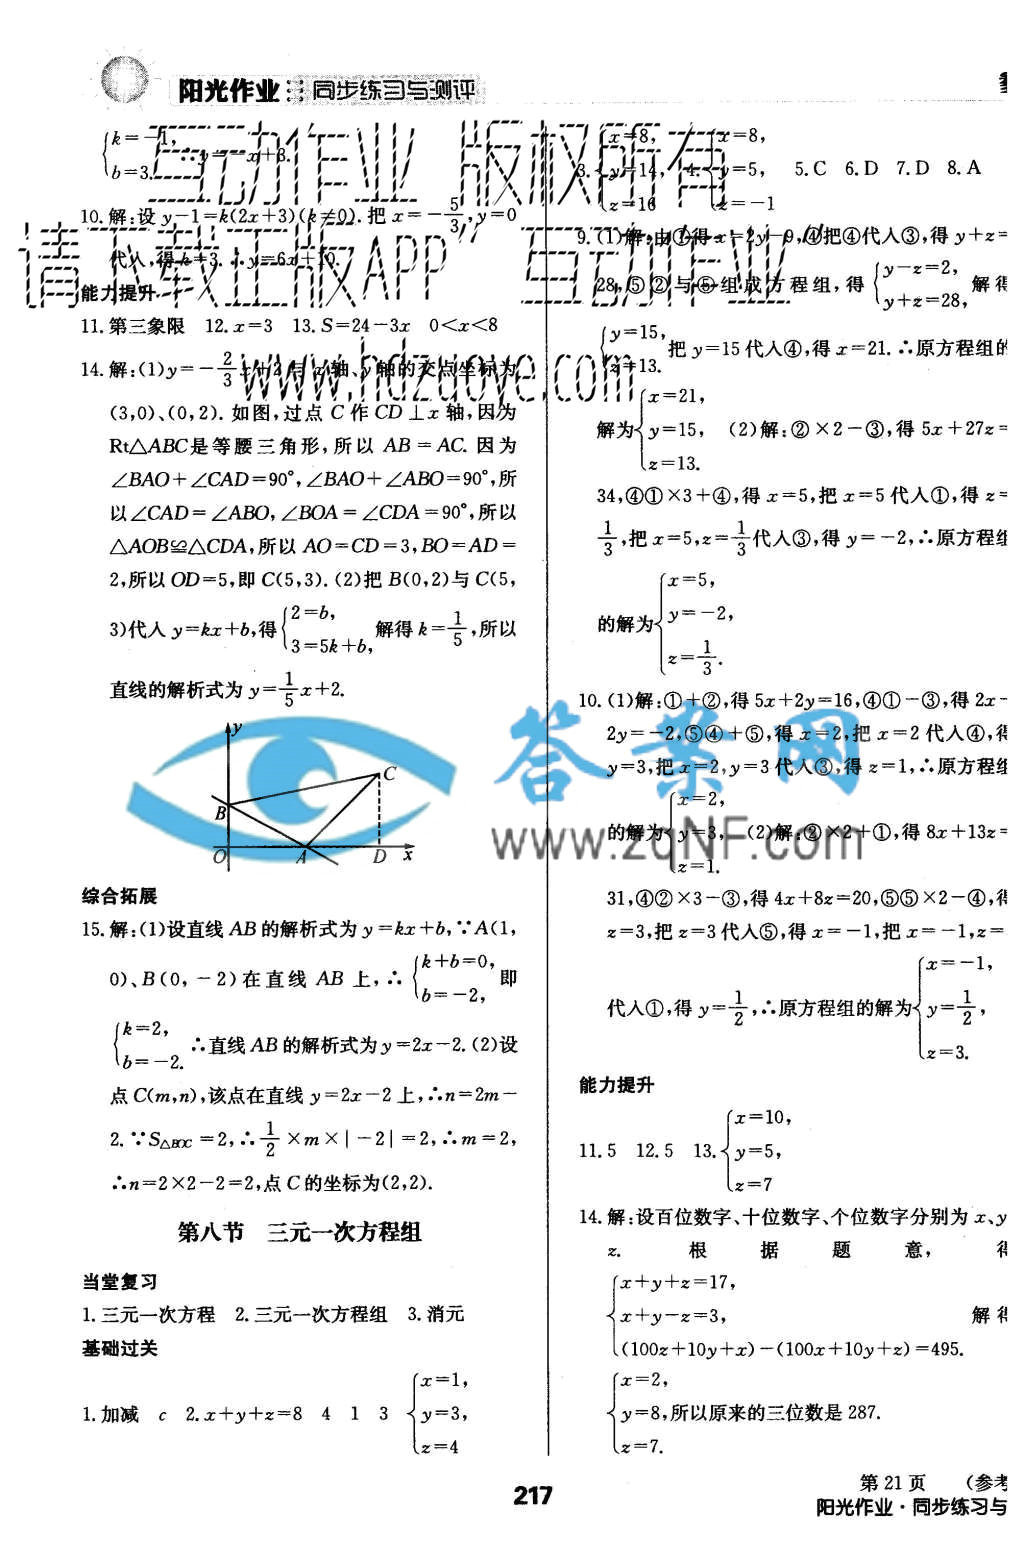 阳光作业 同步练习与测评
{k=-1, b=3. ∴y=-x+3.
10.解:设 y-1=k(2x+3)(k≠0).把 x=-5/3,y=0
代入,得k=3.∴y=6x+10.
能力提升
11.第三象限 12.x=3 13.S=24-3x 0<x<8
14.解:(1)y=-2/3x+2与x轴、y轴的交点坐标为
(3,0)、(0,2).如图,过点 C 作 CD⊥x 轴,因为
Rt△ABC是等腰三角形,所以 AB=AC.因为
∠BAO+∠CAD=90°,∠BAO+∠ABO=90°,所
以∠CAD=∠ABO,∠BOA=∠CDA=90°,所以
△AOB≌△CDA,所以 AO=CD=3,BO=AD=
2,所以OD=5,即 C(5,3).(2)把 B(0,2)与 C(5,
3)代入 y=kx+b,得{2=b, 3=5k+b, 解得 k=1/5,所以
直线的解析式为 y=1/5x+2.
y
C
B
O A D x
综合拓展
15.解:(1)设直线 AB 的解析式为 y=kx+b,∵A(1,
0)、B(0,-2)在直线 AB 上,∴{k+b=0, b=-2, 即
{k=2, b=-2. ∴直线AB的解析式为y=2x-2.(2)设
点 C(m,n),该点在直线 y=2x-2 上,∴n=2m-
2.∵S△BOC=2,∴1/2×m×|-2|=2,∴m=2,
∴n=2×2-2=2,点 C 的坐标为(2,2).
第八节 三元一次方程组
当堂复习
1.三元一次方程 2.三元一次方程组 3.消元
基础过关
1.加减 c 2.x+y+z=8 4 1 3 {x=1, y=3, z=4
3.{x=8, y=14, z=16 4.{x=8, y=5, z=-1 5.C 6.D 7.D 8.A
9.(1)解:由①得x=2y-9,④把④代入③,得 y+z=
28,⑤②与⑤组成方程组,得{y-z=2, y+z=28, 解得
{y=15, z=13. 把 y=15 代入④,得 x=21.∴原方程组的
解为{x=21, y=15, z=13. (2)解:②×2-③,得 5x+27z=
34,④①×3+④,得 x=5,把 x=5 代入①,得 z=
1/3,把 x=5,z=1/3代入③,得 y=-2,∴原方程组
的解为{x=5, y=-2, z=1/3.
10.(1)解:①+②,得 5x+2y=16,④①-③,得 2x-
2y=-2,⑤④+⑤,得 x=2,把 x=2 代入④,得
y=3,把 x=2,y=3 代入③,得 z=1,∴原方程组
的解为{x=2, y=3, z=1. (2)解:③×2+①,得 8x+13z=
31,④②×3-③,得 4x+8z=20,⑤⑤×2-④,得
z=3,把 z=3 代入⑤,得 x=-1,把 x=-1,z=
代入①,得 y=1/2,∴原方程组的解为{x=-1, y=1/2, z=3.
能力提升
11.5 12.5 13.{x=10, y=5, z=7
14.解:设百位数字、十位数字、个位数字分别为 x、y
z. 根据题意,得
{x+y+z=17, x+y-z=3, (100z+10y+x)-(100x+10y+z)=495. 解得
{x=2, y=8, z=7. 所以原来的三位数是 287.
217
第 21 页 (参考
阳光作业·同步练习与
互动作业 版权所有
请下载正版APP“互动作业”
www.hdzuoye.com
答案网
www.zqNF.com